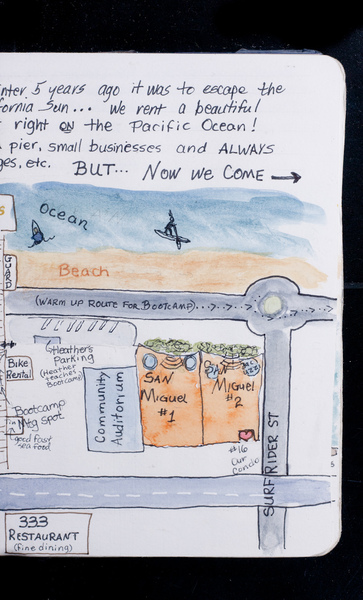 inter 5 years ago it was to escape the
fornia Sun... we rent a beautiful
right ON the Pacific Ocean!
pier, small businesses and ALWAYS
ges, etc. BUT... NOW WE COME →
Ocean
GUARD
Beach
(WARM UP ROUTE FOR BOOTCAMP)...>..>..>..>
Heather's
Parking
(Heather
teaches
Bootcamp)
Bike
Rental
Bootcamp
Mtg spot
good fast
sea food
Community
Auditorium
SAN
MIGUEL
#1
SAN
MIGUEL
#2
#16
Our
Condo
SURFRIDER ST
333
RESTAURANT
(fine dining)